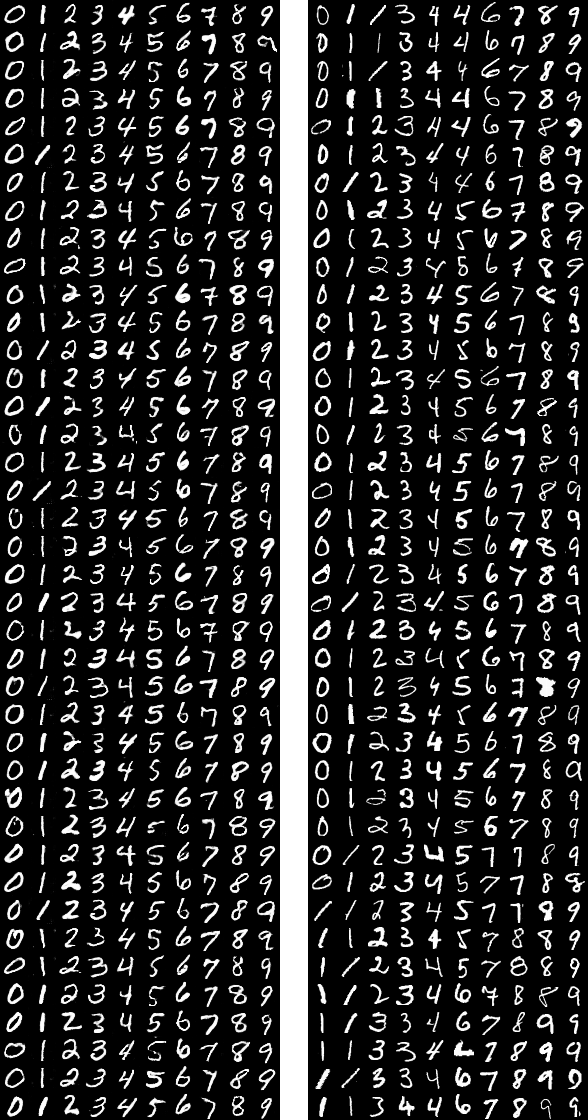 0 1 2 3 4 5 6 7 8 9
0 1 2 3 4 5 6 7 8 9
0 1 2 3 4 5 6 7 8 9
0 1 2 3 4 5 6 7 8 9
0 1 2 3 4 5 6 7 8 9
0 1 2 3 4 5 6 7 8 9
0 1 2 3 4 5 6 7 8 9
0 1 2 3 4 5 6 7 8 9
0 1 2 3 4 5 6 7 8 9
0 1 2 3 4 5 6 7 8 9
0 1 2 3 4 5 6 7 8 9
0 1 2 3 4 5 6 7 8 9
0 1 2 3 4 5 6 7 8 9
0 1 2 3 4 5 6 7 8 9
0 1 2 3 4 5 6 7 8 9
0 1 2 3 4 5 6 7 8 9
0 1 2 3 4 5 6 7 8 9
0 1 2 3 4 5 6 7 8 9
0 1 2 3 4 5 6 7 8 9
0 1 2 3 4 5 6 7 8 9
0 1 2 3 4 5 6 7 8 9
0 1 2 3 4 5 6 7 8 9
0 1 2 3 4 5 6 7 8 9
0 1 2 3 4 5 6 7 8 9
0 1 2 3 4 5 6 7 8 9
0 1 2 3 4 5 6 7 8 9
0 1 2 3 4 5 6 7 8 9
0 1 2 3 4 5 6 7 8 9
0 1 2 3 4 5 6 7 8 9
0 1 2 3 4 5 6 7 8 9
0 1 2 3 4 5 6 7 8 9
0 1 2 3 4 5 6 7 8 9
0 1 2 3 4 5 6 7 8 9
0 1 2 3 4 5 6 7 8 9
0 1 2 3 4 5 6 7 8 9
0 1 2 3 4 5 6 7 8 9
0 1 2 3 4 5 6 7 8 9
0 1 2 3 4 5 6 7 8 9
0 1 2 3 4 5 6 7 8 9
0 1 2 3 4 5 6 7 8 9
0 1 1 3 4 4 6 7 8 9
0 1 1 3 4 4 6 7 8 9
0 1 1 3 4 4 6 7 8 9
0 1 1 3 4 4 6 7 8 9
0 1 2 3 4 4 6 7 8 9
0 1 2 3 4 4 6 7 8 9
0 1 2 3 4 4 6 7 8 9
0 1 2 3 4 5 6 7 8 9
0 1 2 3 4 5 6 7 8 9
0 1 2 3 4 5 6 7 8 9
0 1 2 3 4 5 6 7 8 9
0 1 2 3 4 5 6 7 8 9
0 1 2 3 4 5 6 7 8 9
0 1 2 3 4 5 6 7 8 9
0 1 2 3 4 5 6 7 8 9
0 1 2 3 4 5 6 7 8 9
0 1 2 3 4 5 6 7 8 9
0 1 2 3 4 5 6 7 8 9
0 1 2 3 4 5 6 7 8 9
0 1 2 3 4 5 6 7 8 9
0 1 2 3 4 5 6 7 8 9
0 1 2 3 4 5 6 7 8 9
0 1 2 3 4 5 6 7 8 9
0 1 2 3 4 5 6 7 8 9
0 1 2 3 4 5 6 7 8 9
0 1 2 3 4 5 6 7 8 9
0 1 2 3 4 5 6 7 8 9
0 1 2 3 4 5 6 7 8 9
0 1 2 3 4 5 6 7 8 9
0 1 2 3 4 5 6 7 8 9
0 1 2 3 4 5 7 7 8 9
0 1 2 3 4 5 7 7 8 9
1 1 2 3 4 5 7 7 8 9
1 1 2 3 4 5 7 8 8 9
1 1 2 3 4 5 7 8 8 9
1 1 2 3 4 6 7 8 8 9
1 1 3 3 4 6 7 8 9 9
1 1 3 3 4 6 7 8 9 9
1 1 3 3 4 6 7 8 9 9
1 1 3 4 4 6 7 8 9 9